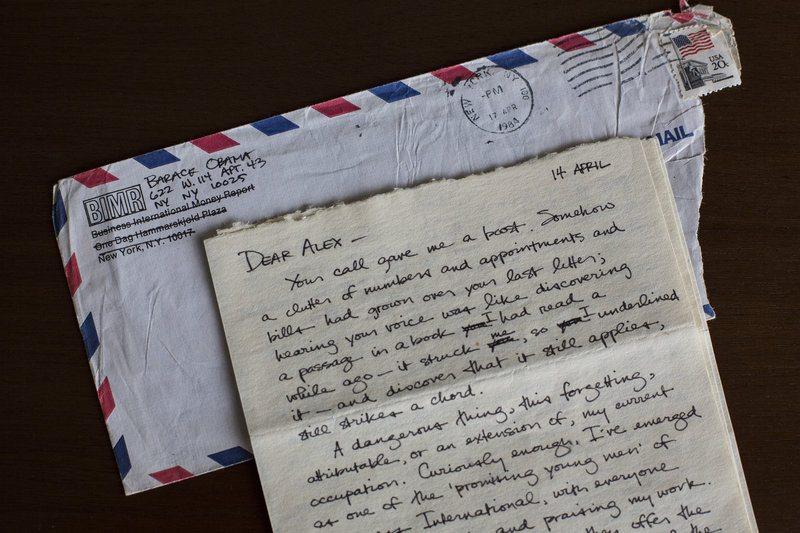 BARACK OBAMA
622 W. 114 APT. 43
NY NY 10025
BIMR
Business International Money Report
One Dag Hammarskjold Plaza
New York, N.Y. 10017
NEW YORK, NY 100
-PM
17 APR
1984
USA
20c
MAIL
14 APRIL
DEAR ALEX —
Your call gave me a boost. Somehow
a clutter of numbers and appointments and
bills had grown over your last letter;
hearing your voice was like discovering
a passage in a book I had read a
while ago — it struck me, so I underlined
it — and discover that it still applies,
still strikes a chord.
A dangerous thing, this forgetting,
attributable, or an extension of, my current
occupation. Curiously enough, I've emerged
as one of the 'promising young men' of
International, with everyone
and praising my work.
they offer the
the